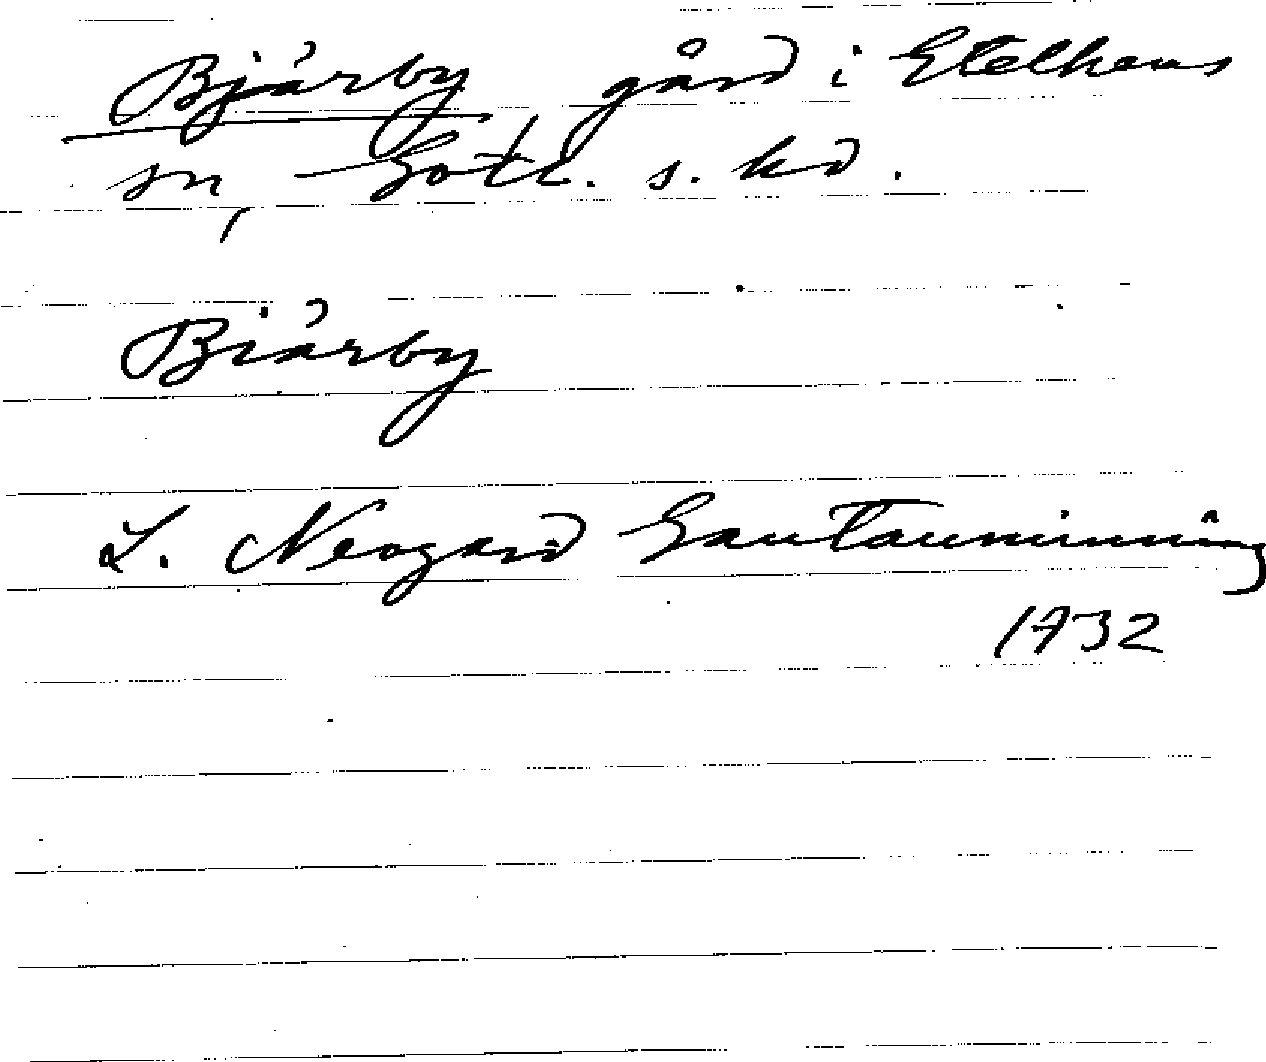 Bjärby gård i Etelhems
sn, Gotl. s. hd.
Biärby
L. Neogard Gautauminning
1732